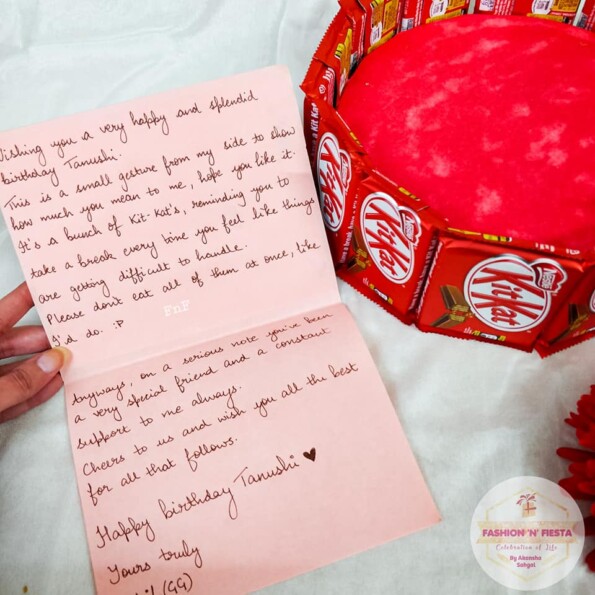 Wishing you a very happy and splendid
birthday Tanushi.
This is a small gesture from my side to show
how much you mean to me, hope you like it.
It's a bunch of Kit-Kat's, reminding you to
take a break every time you feel like things
are getting difficult to handle.
Please don't eat all of them at once, like
I'd do. :P
FnF
Anyways, on a serious note you've been
a very special friend and a constant
support to me always.
Cheers to us and wish you all the best
for all that follows.
Happy birthday Tanushi ♥
Yours truly
(GG)
KitKat
KitKat
Nestlé
KitKat
FASHION 'N' FIESTA
Celebration of Life
By Akansha
Sehgal